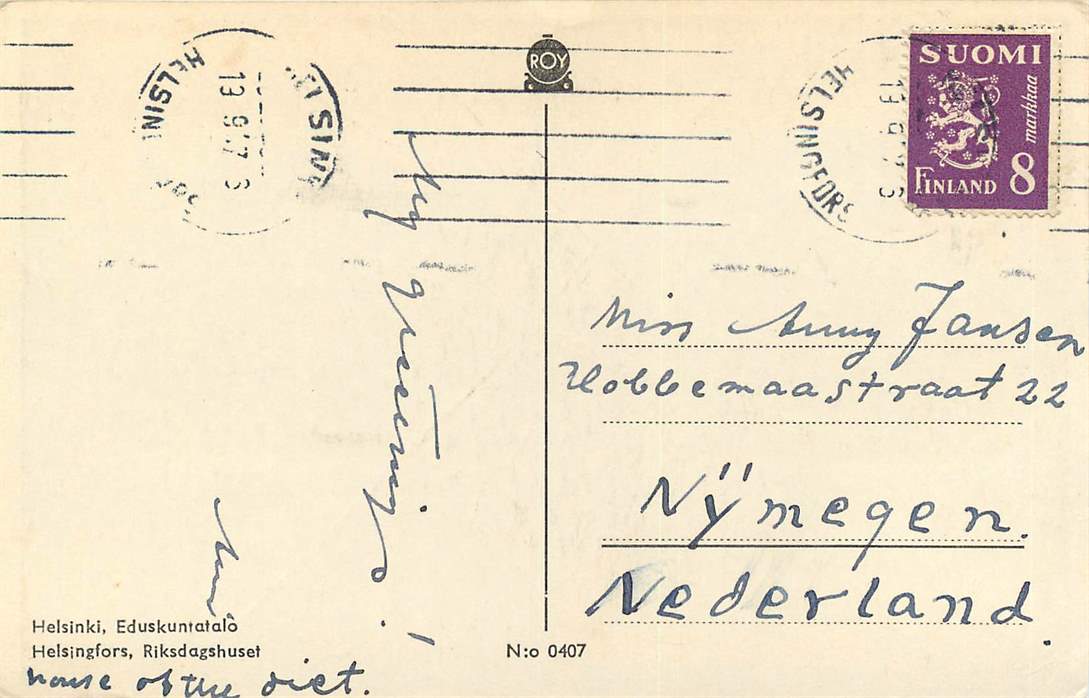 HELSINKI
13.9.47
ROY
HELSINGFORS
SUOMI
markkaa
FINLAND 8
My greetings!
Miss Anny Jansen
Hobbemaastraat 22
Nÿmegen.
Nederland.
Helsinki, Eduskuntatalo
Helsingfors, Riksdagshuset
house of the diet.
N:o 0407